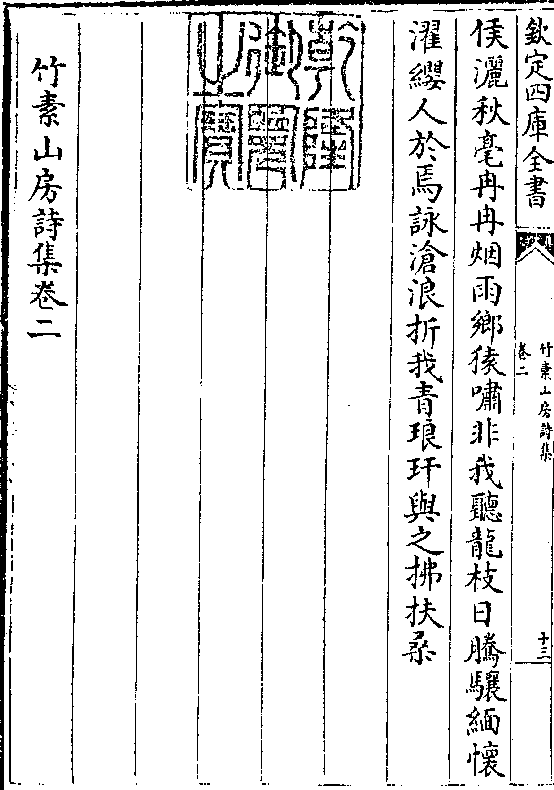 欽定四庫全書
竹素山房詩集
卷二
十三
侯灑秋毫冉冉烟雨鄉猿嘯非我聽龍枝日騰驤緬懷
濯纓人於焉詠滄浪折我青琅玕與之拂扶桑
乾隆御覽之寶
竹素山房詩集卷二